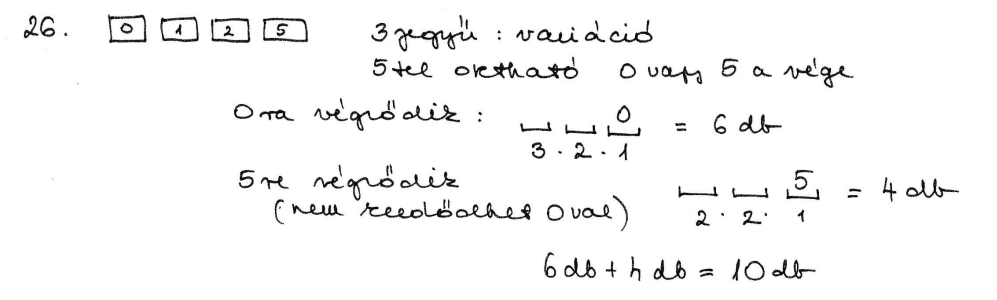 26. 0 1 2 5 3 jegyű : variáció
5tel osztható 0 vagy 5 a vége
0 ra végződik : 0 = 6 db
3 · 2 · 1
5 re végződik 5 = 4 db
(nem kezdődhet 0 val) 2 · 2 · 1
6 db + 4 db = 10 db